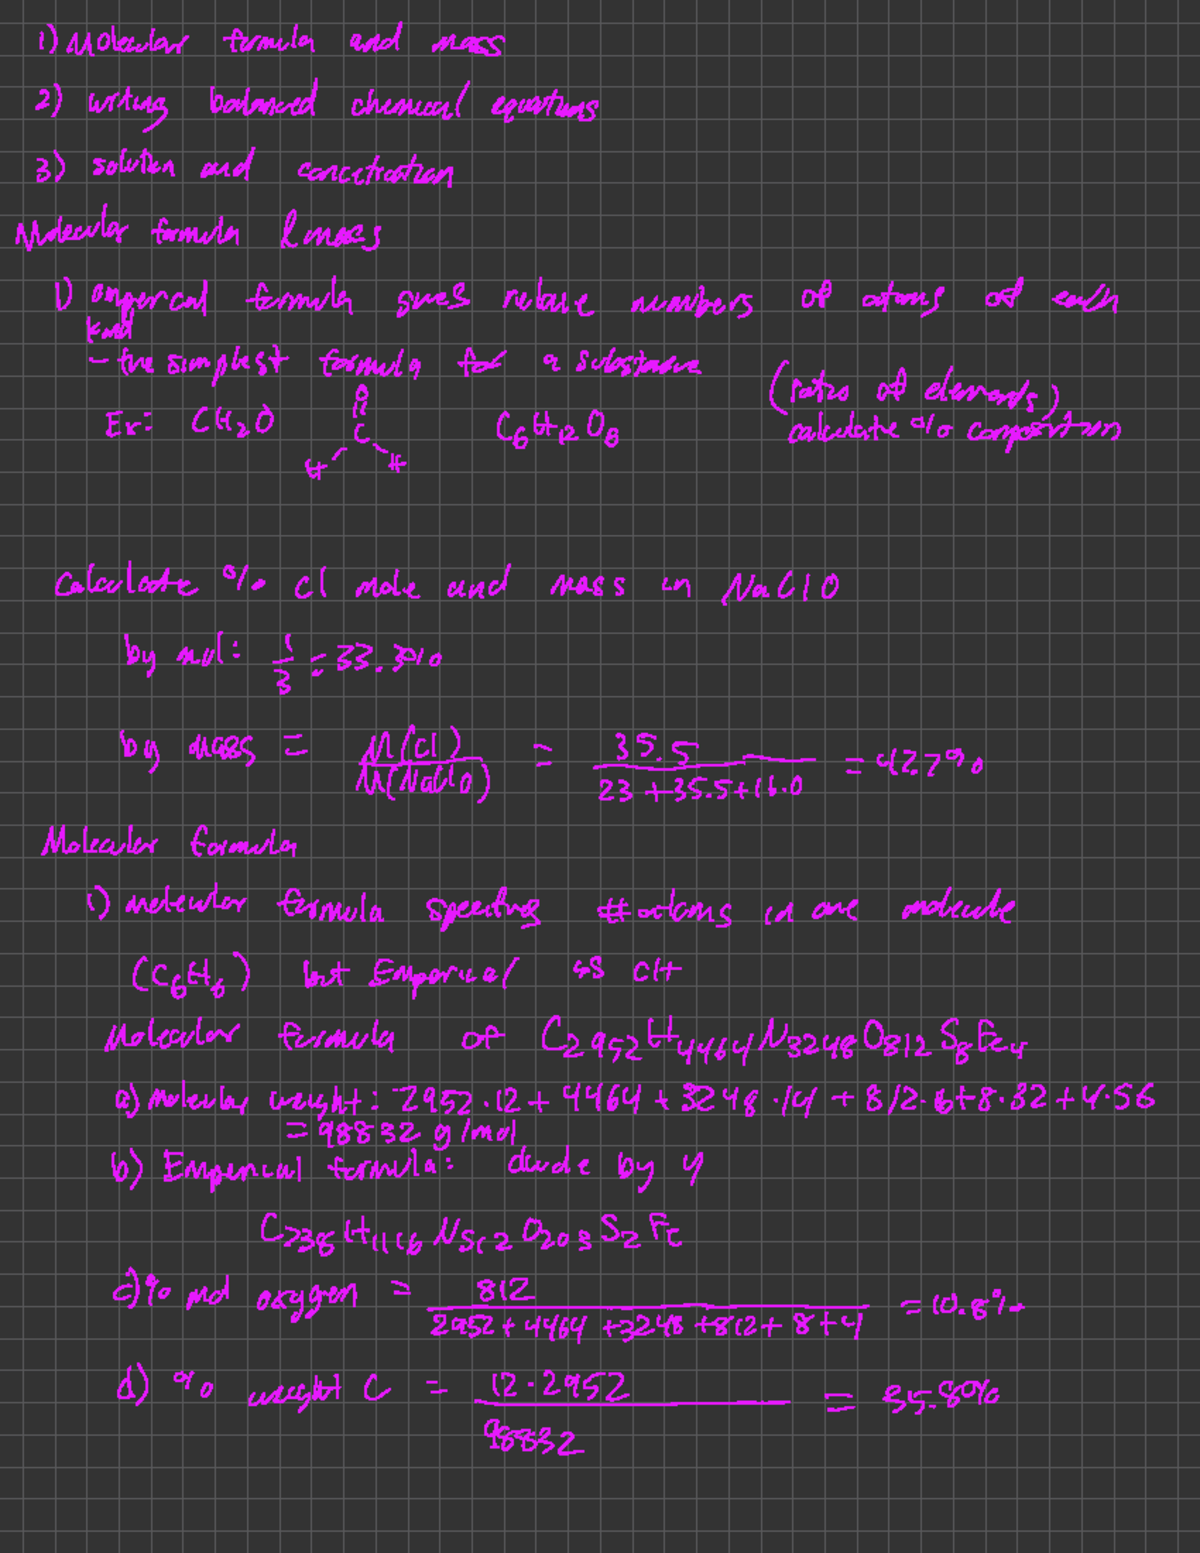 1) Molecular formula and mass
2) writing balanced chemical equations
3) solution and concetration
Molecular formula & mass
1) empercal formula gives relative numbers of atoms of each
kind
- the simplest formula for a substance
(ratio of elements)
Ex: CH₂O O C H H C₆H₁₂O₆ calculate % composition
Calculate % Cl mole and mass in NaClO
by mol: 1/3 = 33.3%
by mass = M(Cl)/M(NaClO) = 35.5/(23+35.5+16.0) = 42.7%
Molecular formula
1) molecular formula specifies # atoms in one molecule
(C₆H₆) but Emperical is CH
Molecular formula of C₂₉₅₂H₄₄₆₄N₃₂₄₈O₈₁₂S₈Fe₄
a) molecular weight: 2952·12 + 4464 + 3248·14 + 812·16+8·32+4·56
= 98832 g/mol
b) Emperical formula: divide by 4
C₇₃₈H₁₁₁₆N₈₁₂O₂₀₃S₂Fe
c) % mol oxygen = 812/(2952+4464+3248+812+8+4) = 10.8%
d) % weight C = 12·2952/98832 = 35.8%